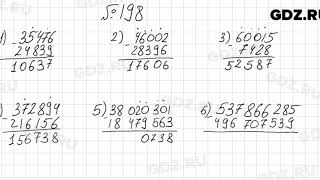 GDZ.RU
№ 198
1) 35476 2) 46002 3) 60015
24839 28396 7428
10637 17606 52587
372894 5) 38 020 301 6) 537 866 285
216156 18 479 563 496 707 539
156738 0738